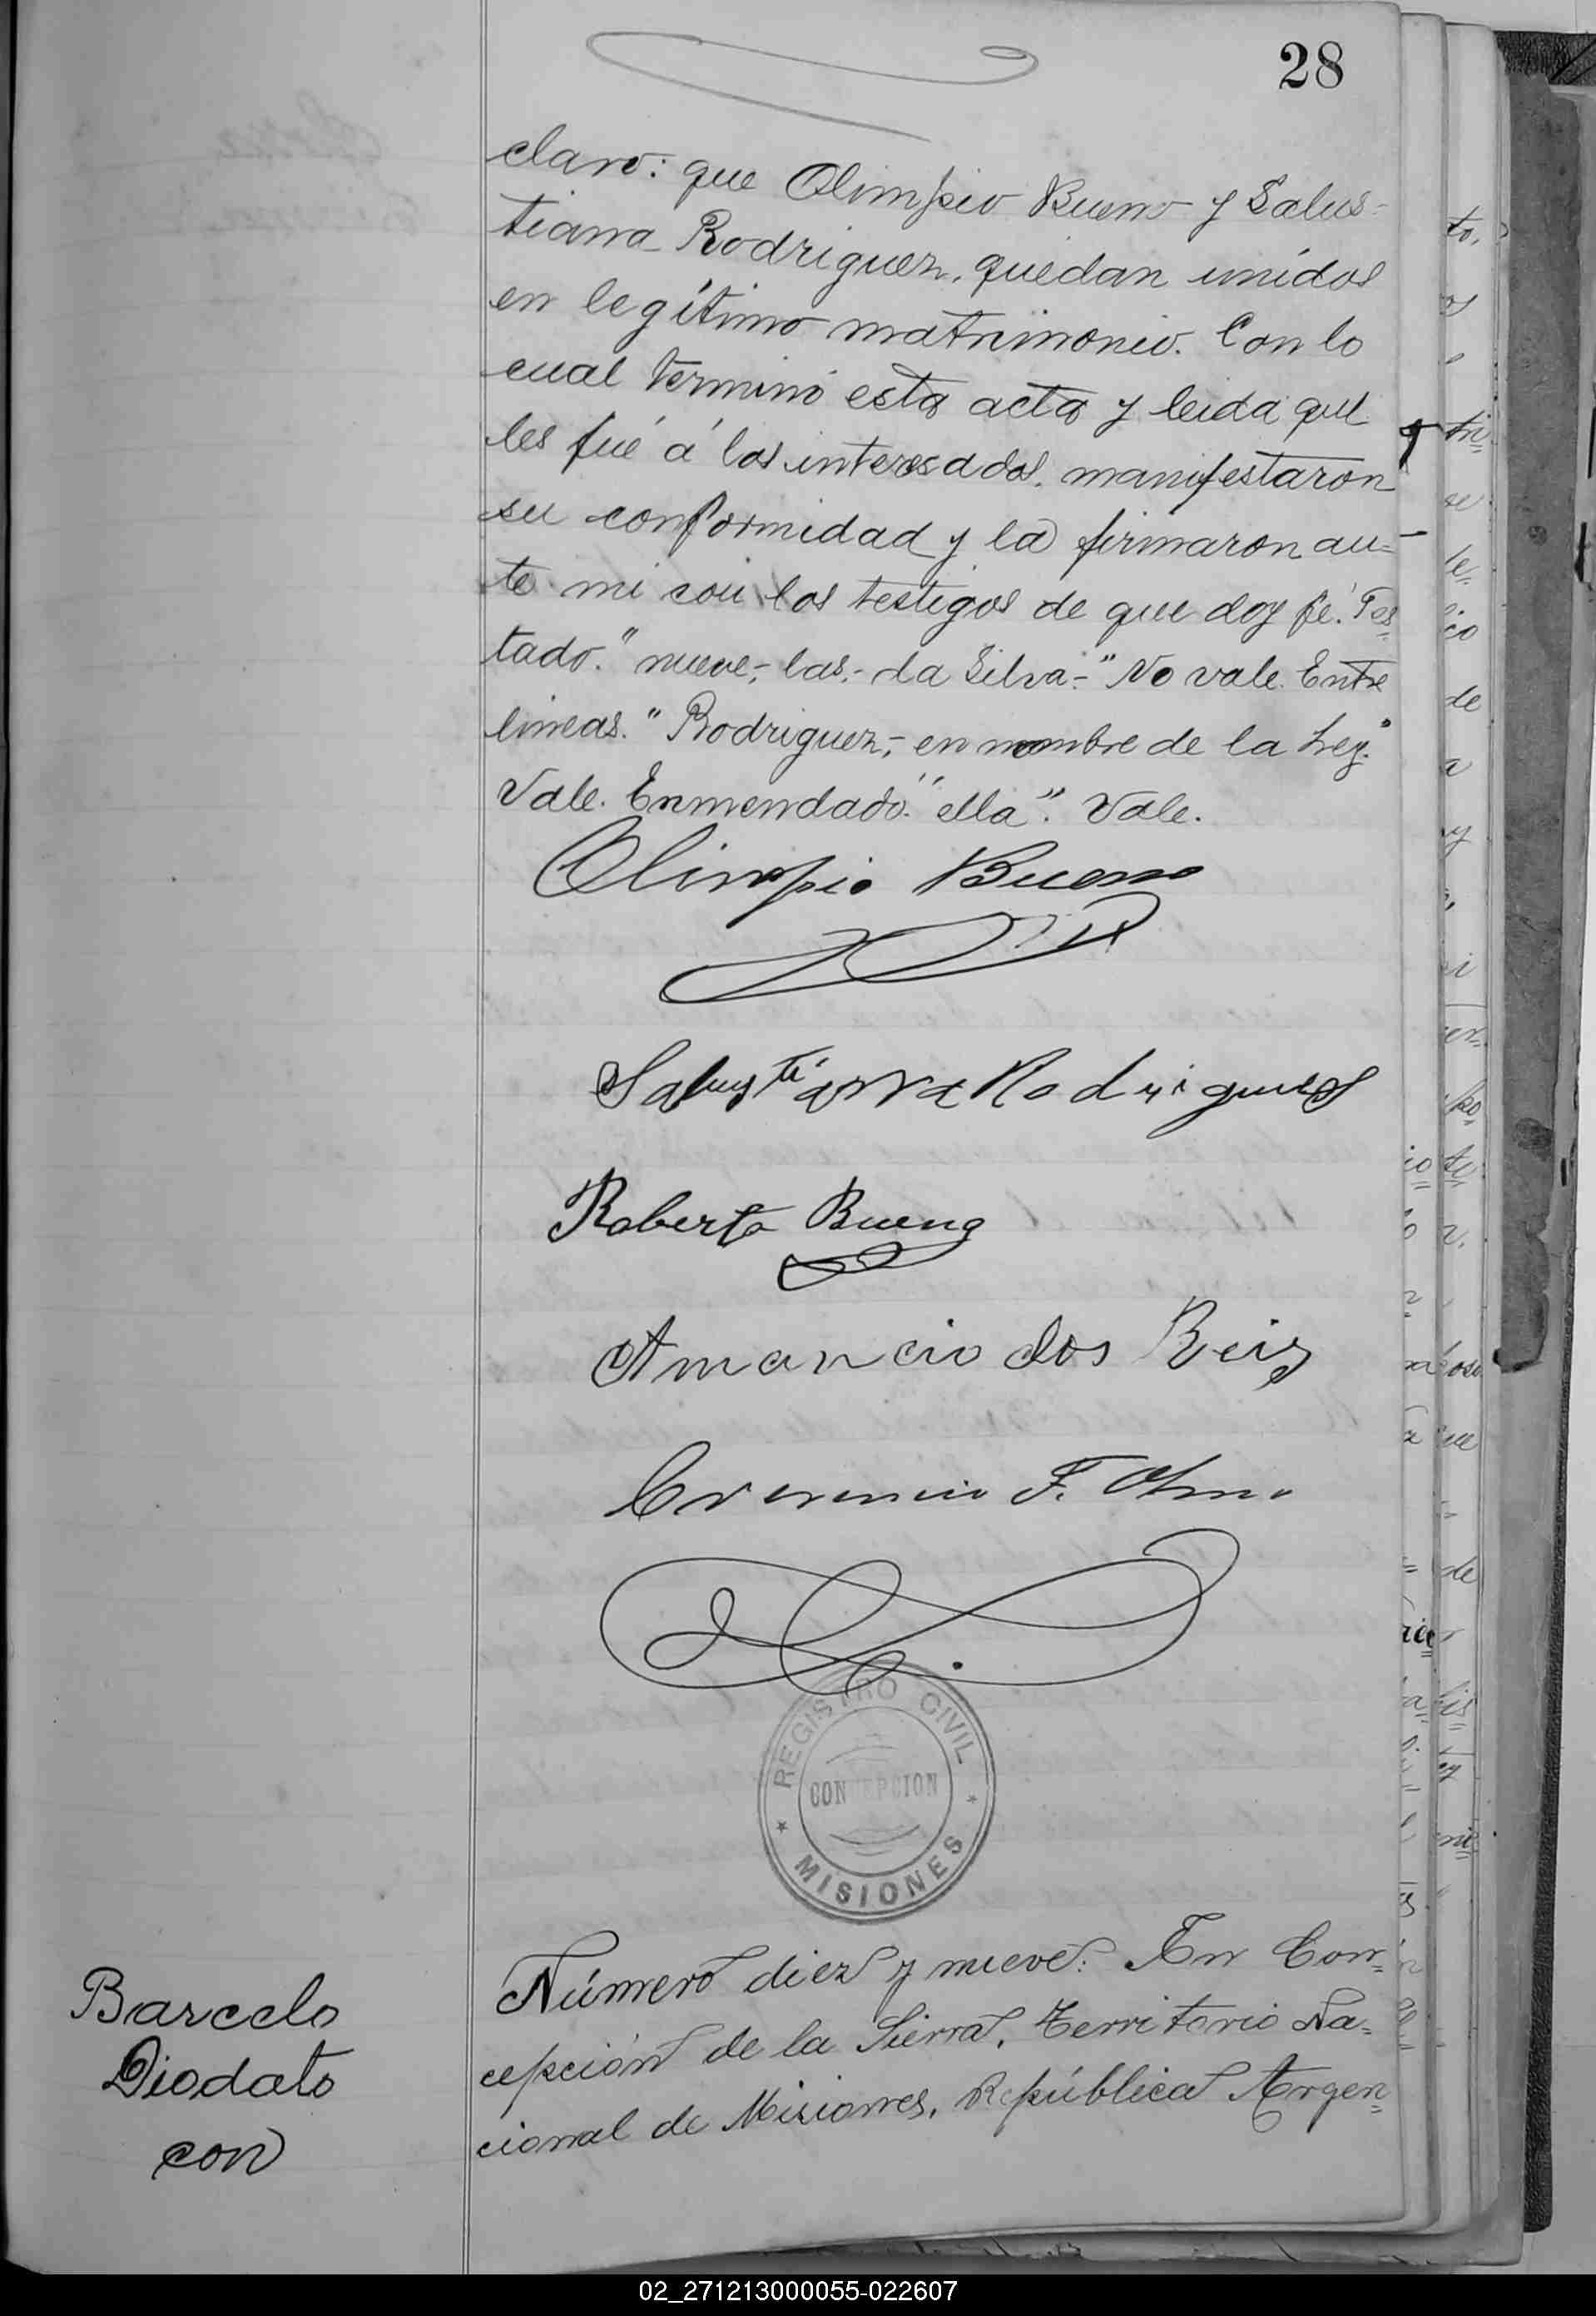 28
claro: que Olimpio Bueno y Salus-
tiana Rodriguez, quedan unidos
en legítimo matrimonio. Con lo
cual terminó esta acta y leida que
les fué á los interesados, manifestaron
su conformidad y la firmaron an=
te mi con los testigos de que doy fé. Tes
tado. "nueve,- las,- da Silva-" No vale. Entre
lineas. "Rodriguez,- en nombre de la Ley."
Vale. Enmendado. "ella". Vale.
Olimpio Bueno
Salustiana Rodrigues
Roberto Bueno
Amancio dos Reis
F.
REGISTRO CIVIL
CONCEPCION
* MISIONES *
Número diez y nueve: En Con=
cepción de la Sierra, Territorio Na=
cional de Misiones, República Argen=
Barcelo
Diodato
con
02_271213000055-022607